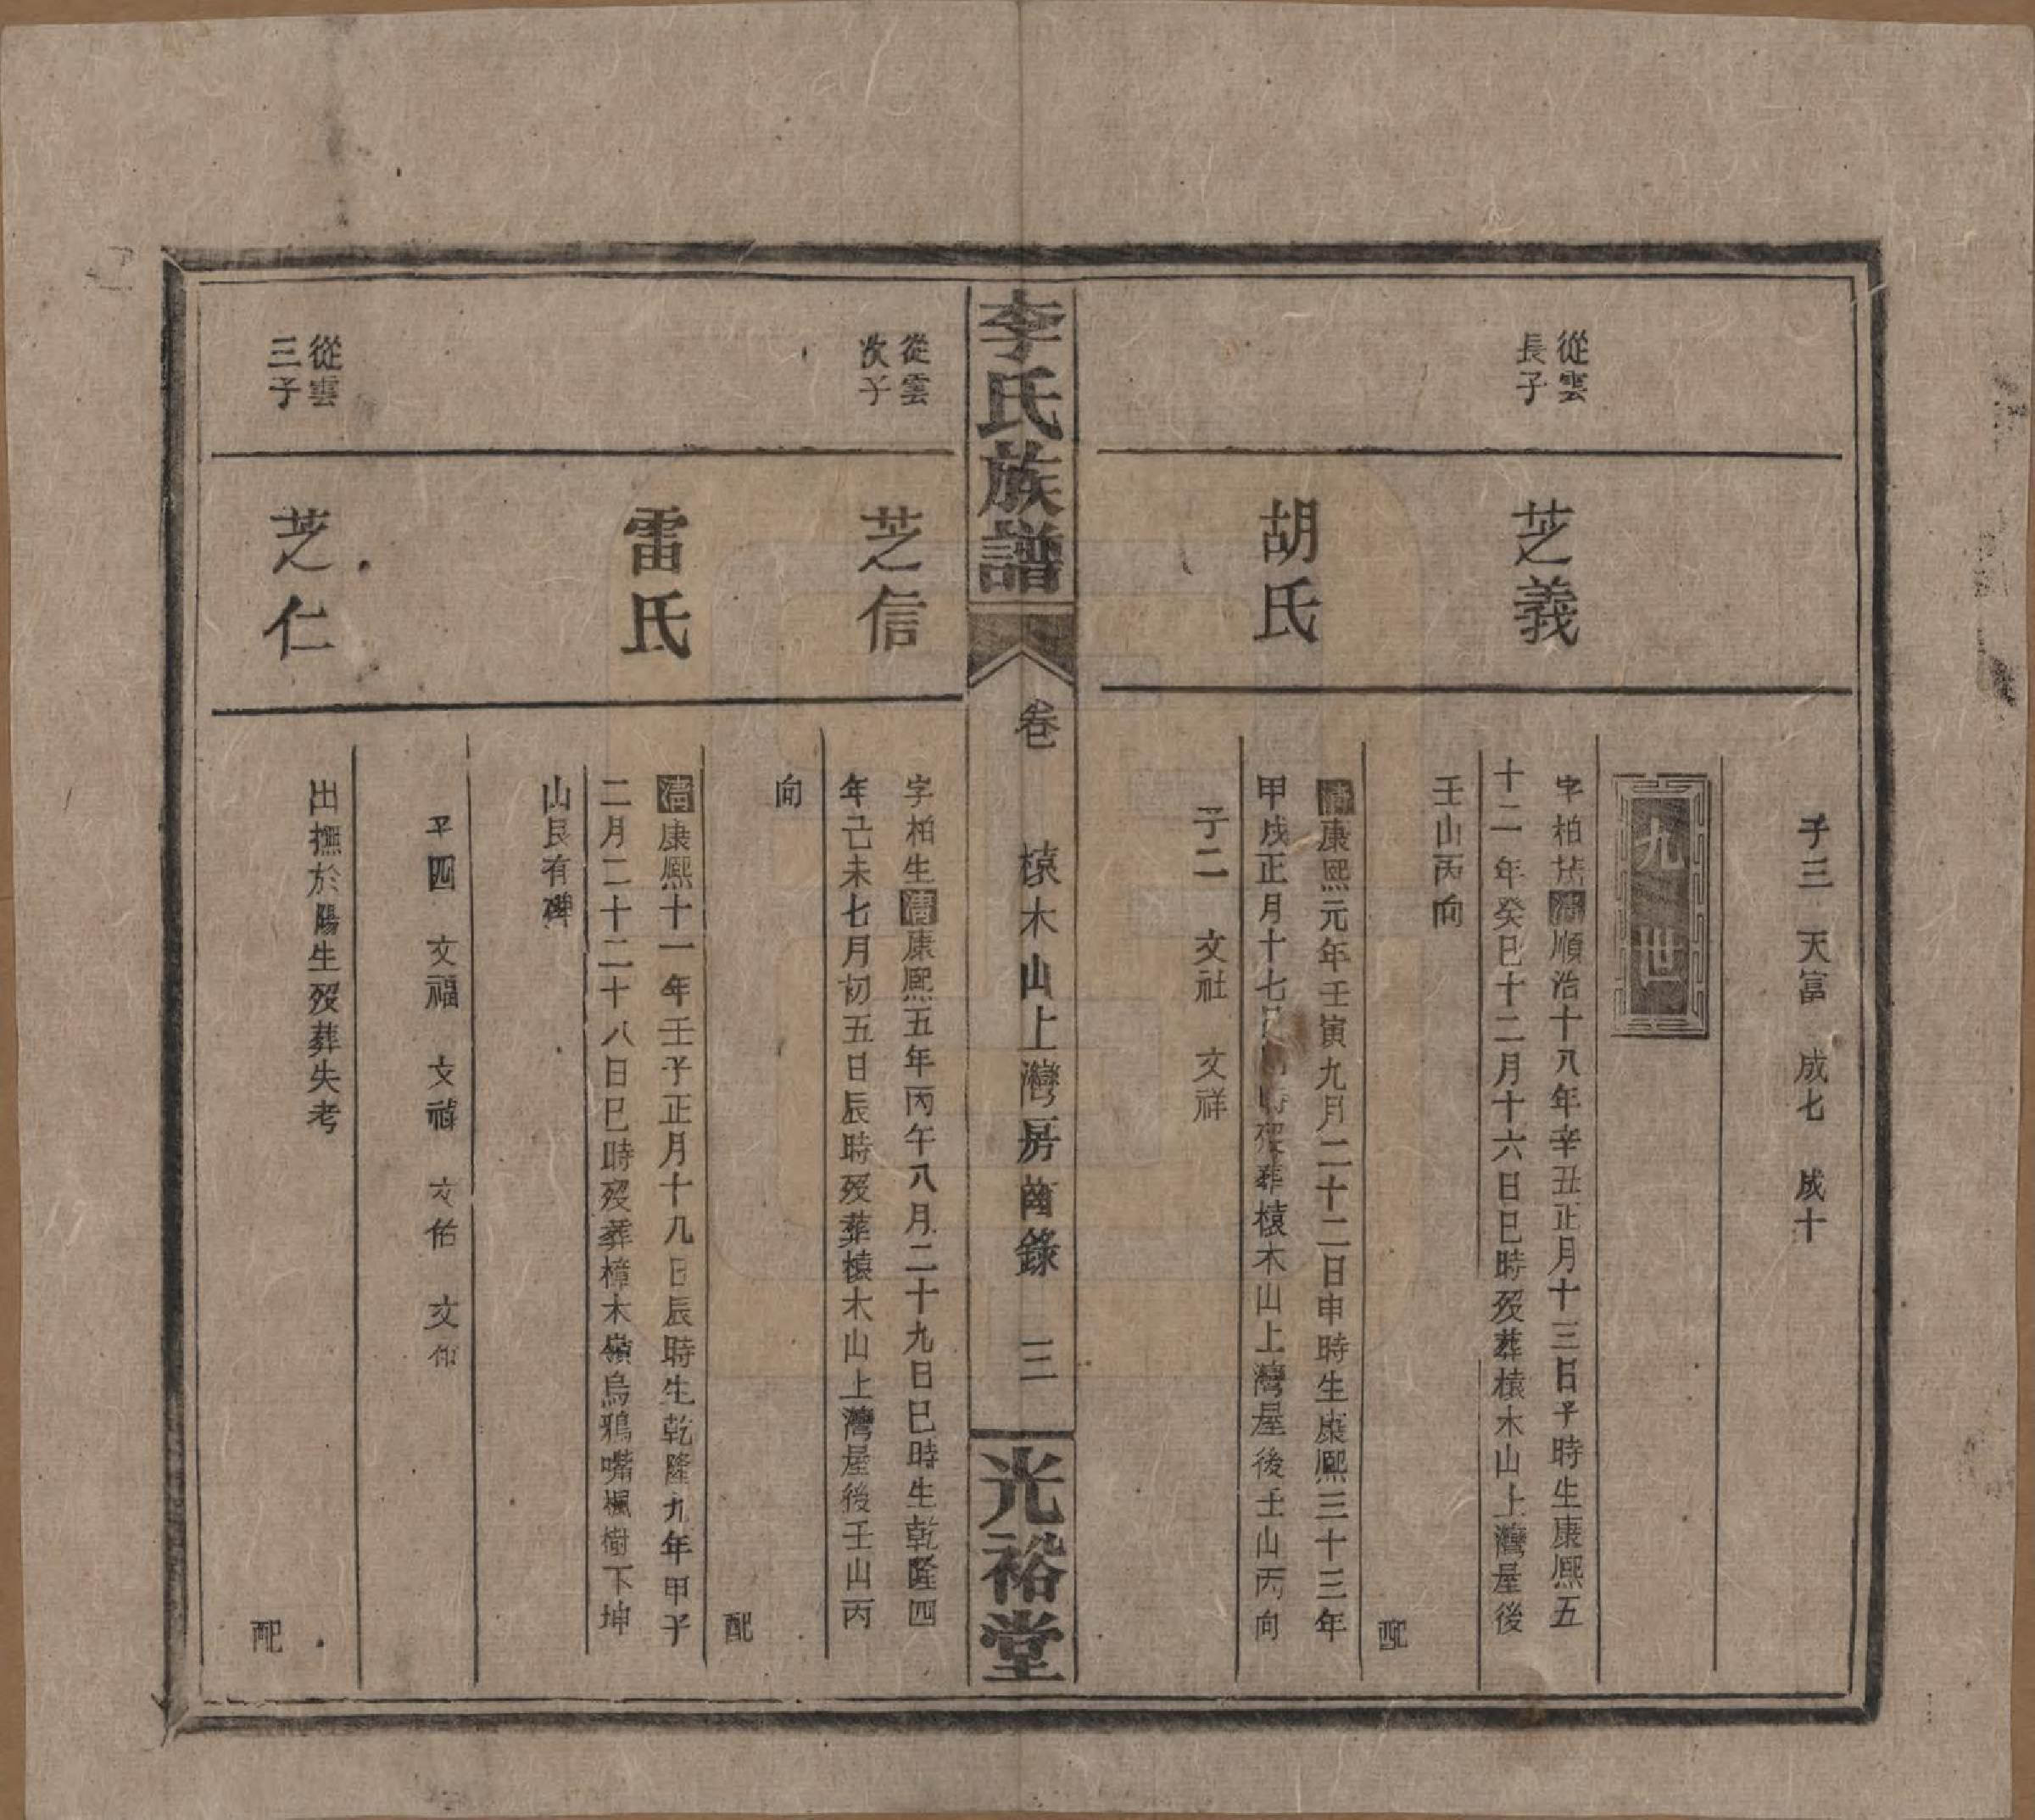 子三 天富 成七 成十
九世
從雲
長子
芝義
字柏
清順治十八年辛丑正月十三日子時生康熙五
十二年癸巳十二月十六日巳時歿葬榬木山上灣屋後
壬山丙向
配
胡氏
清康熙元年壬寅九月二十二日申時生康熙三十三年
甲戌正月十七日
時歿葬榬木山上灣屋後壬山丙向
子二 文社 文祥
李氏族譜
卷
榬木山上灣房齒錄
三
光裕堂
從雲
次子
芝信
字柏生清康熙五年丙午八月二十九日巳時生乾隆四
年己未七月初五日辰時歿葬榬木山上灣屋後壬山丙
向
配
雷氏
清康熙十一年壬子正月十九日辰時生乾隆九年甲子
二月二十二十八日巳時歿葬樟木嶺烏鴉嘴楓樹下坤
山艮有碑
子四 文福 文禎 文佑 文
從雲
三子
芝仁
出撫於陽生歿葬失考
配